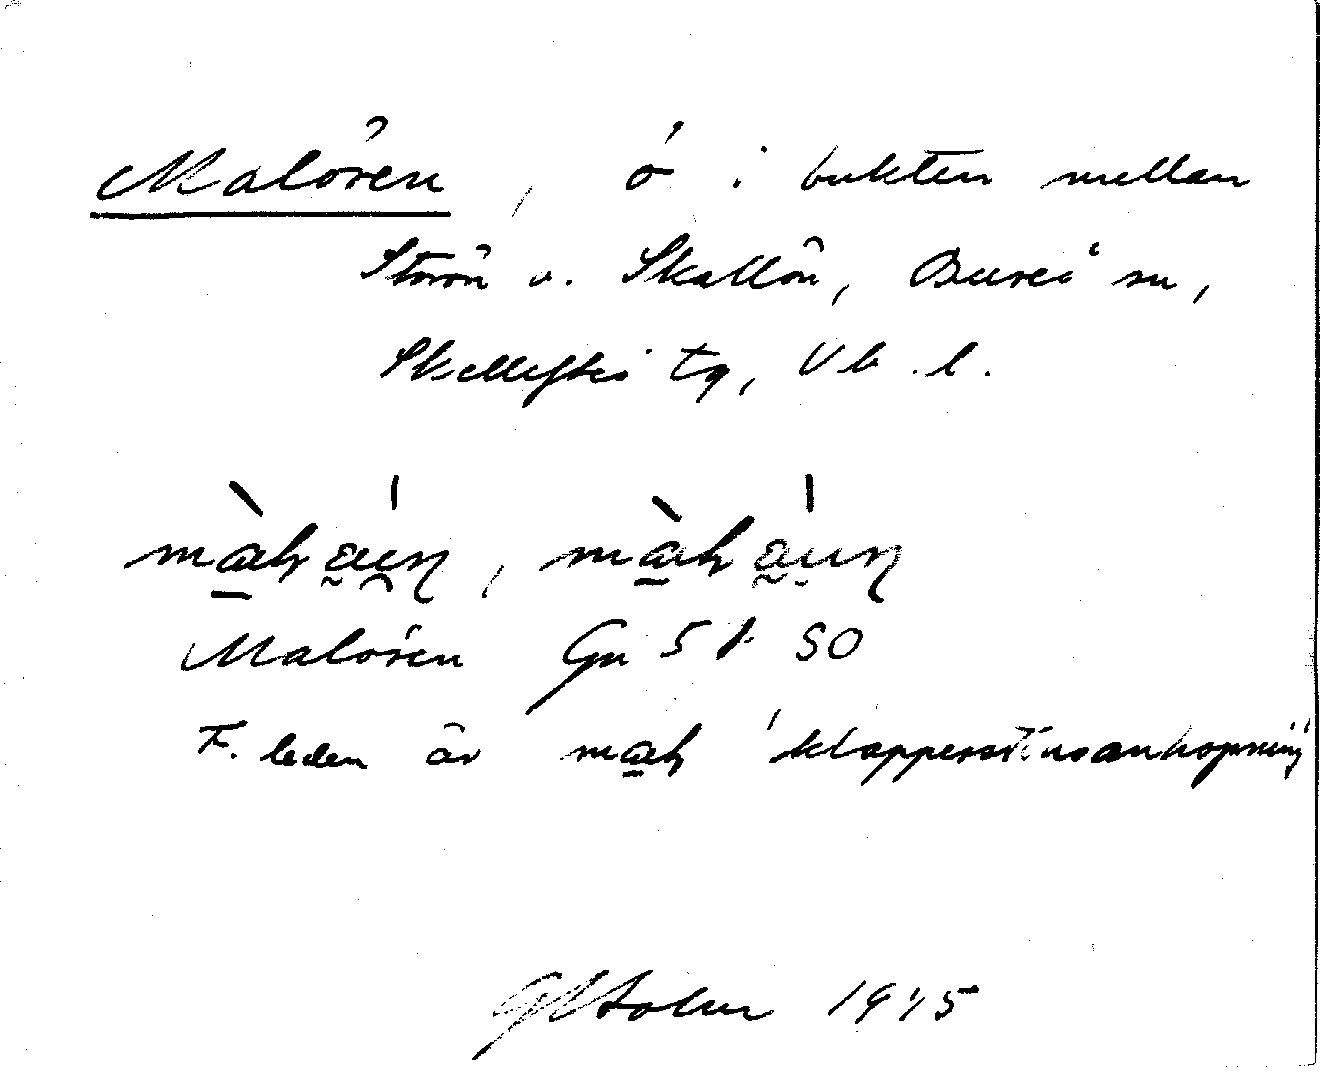 Malören, ö i bukten mellan
Storön o. Skallön, Bureå sn,
Skellefteå tg, Vb. l.
Malören Gn 5 f SO
F. leden är 'klapperstensanhopning'
1945